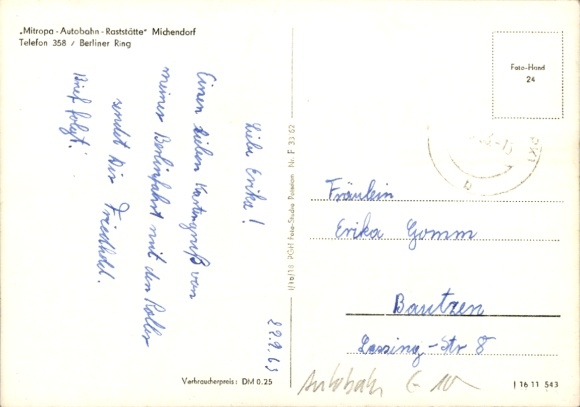 „Mitropa-Autobahn-Raststätte" Michendorf
Telefon 358 / Berliner Ring
29.9.63
Liebe Erika!
Einen lieben Kartengruß von
meiner Berlinfahrt mit den Roller
sendet Dir Friedhold.
Brief folgt!
Verbraucherpreis: DM 0.25
PGH Foto-Studio Potsdam Nr. F 33/62
Foto-Hand
24
Fräulein
Erika Gomm
Bautzen
Lessing-Str 8
Autobahn
J 16 11 543